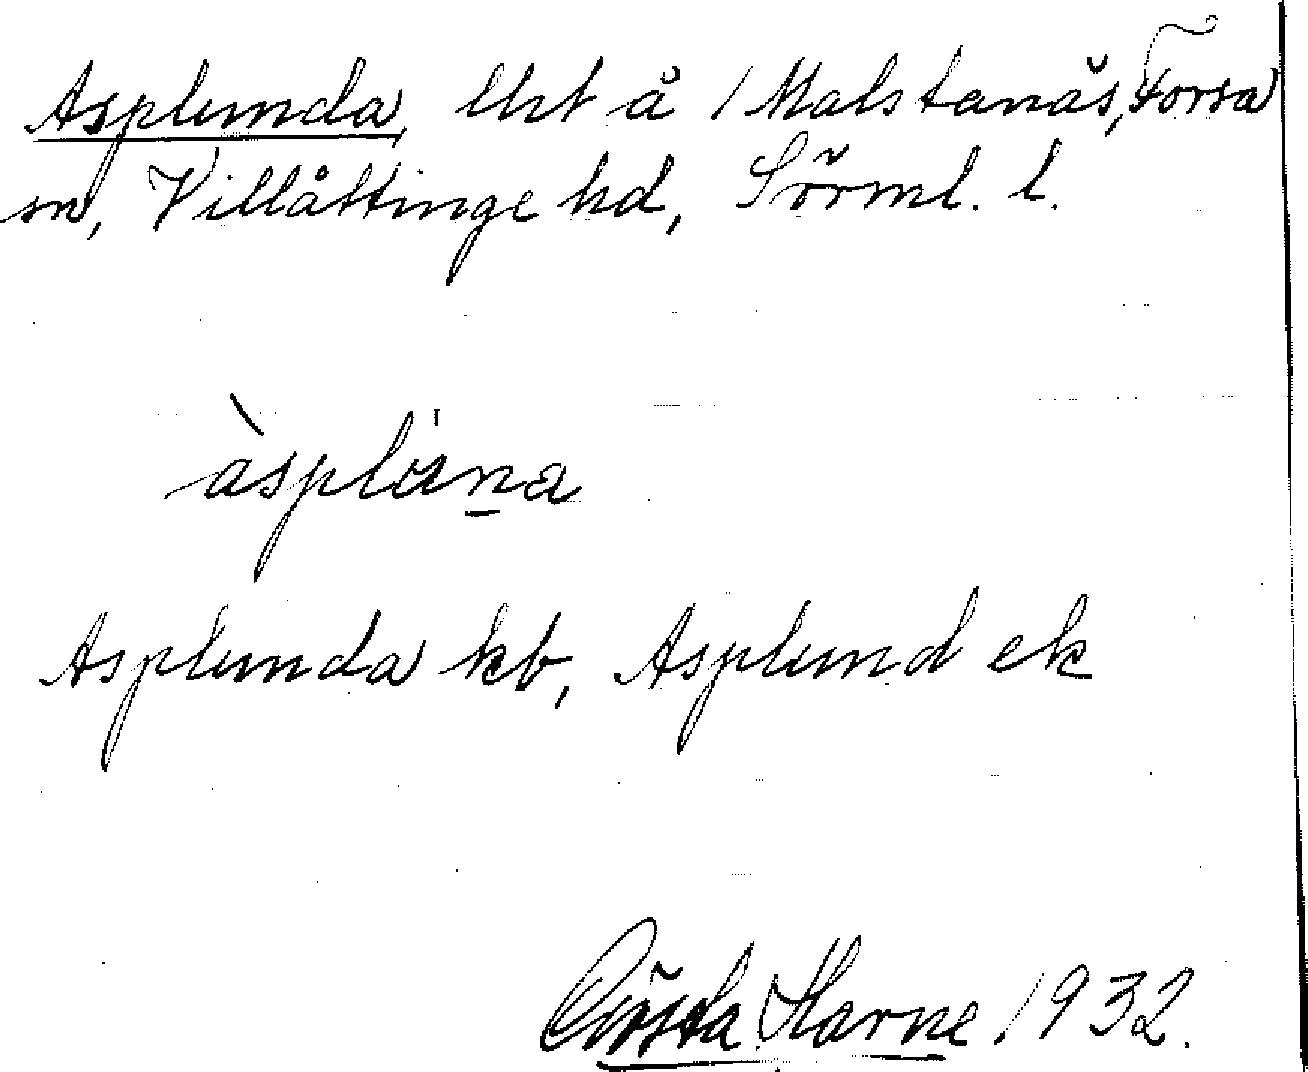 Asplunda, lht å 1 Malstanäs, Forsa
sn, Villåttinge hd, Sörml. l.
àspluna
Asplunda kb, Asplund ek
Gösta Harne 1932.